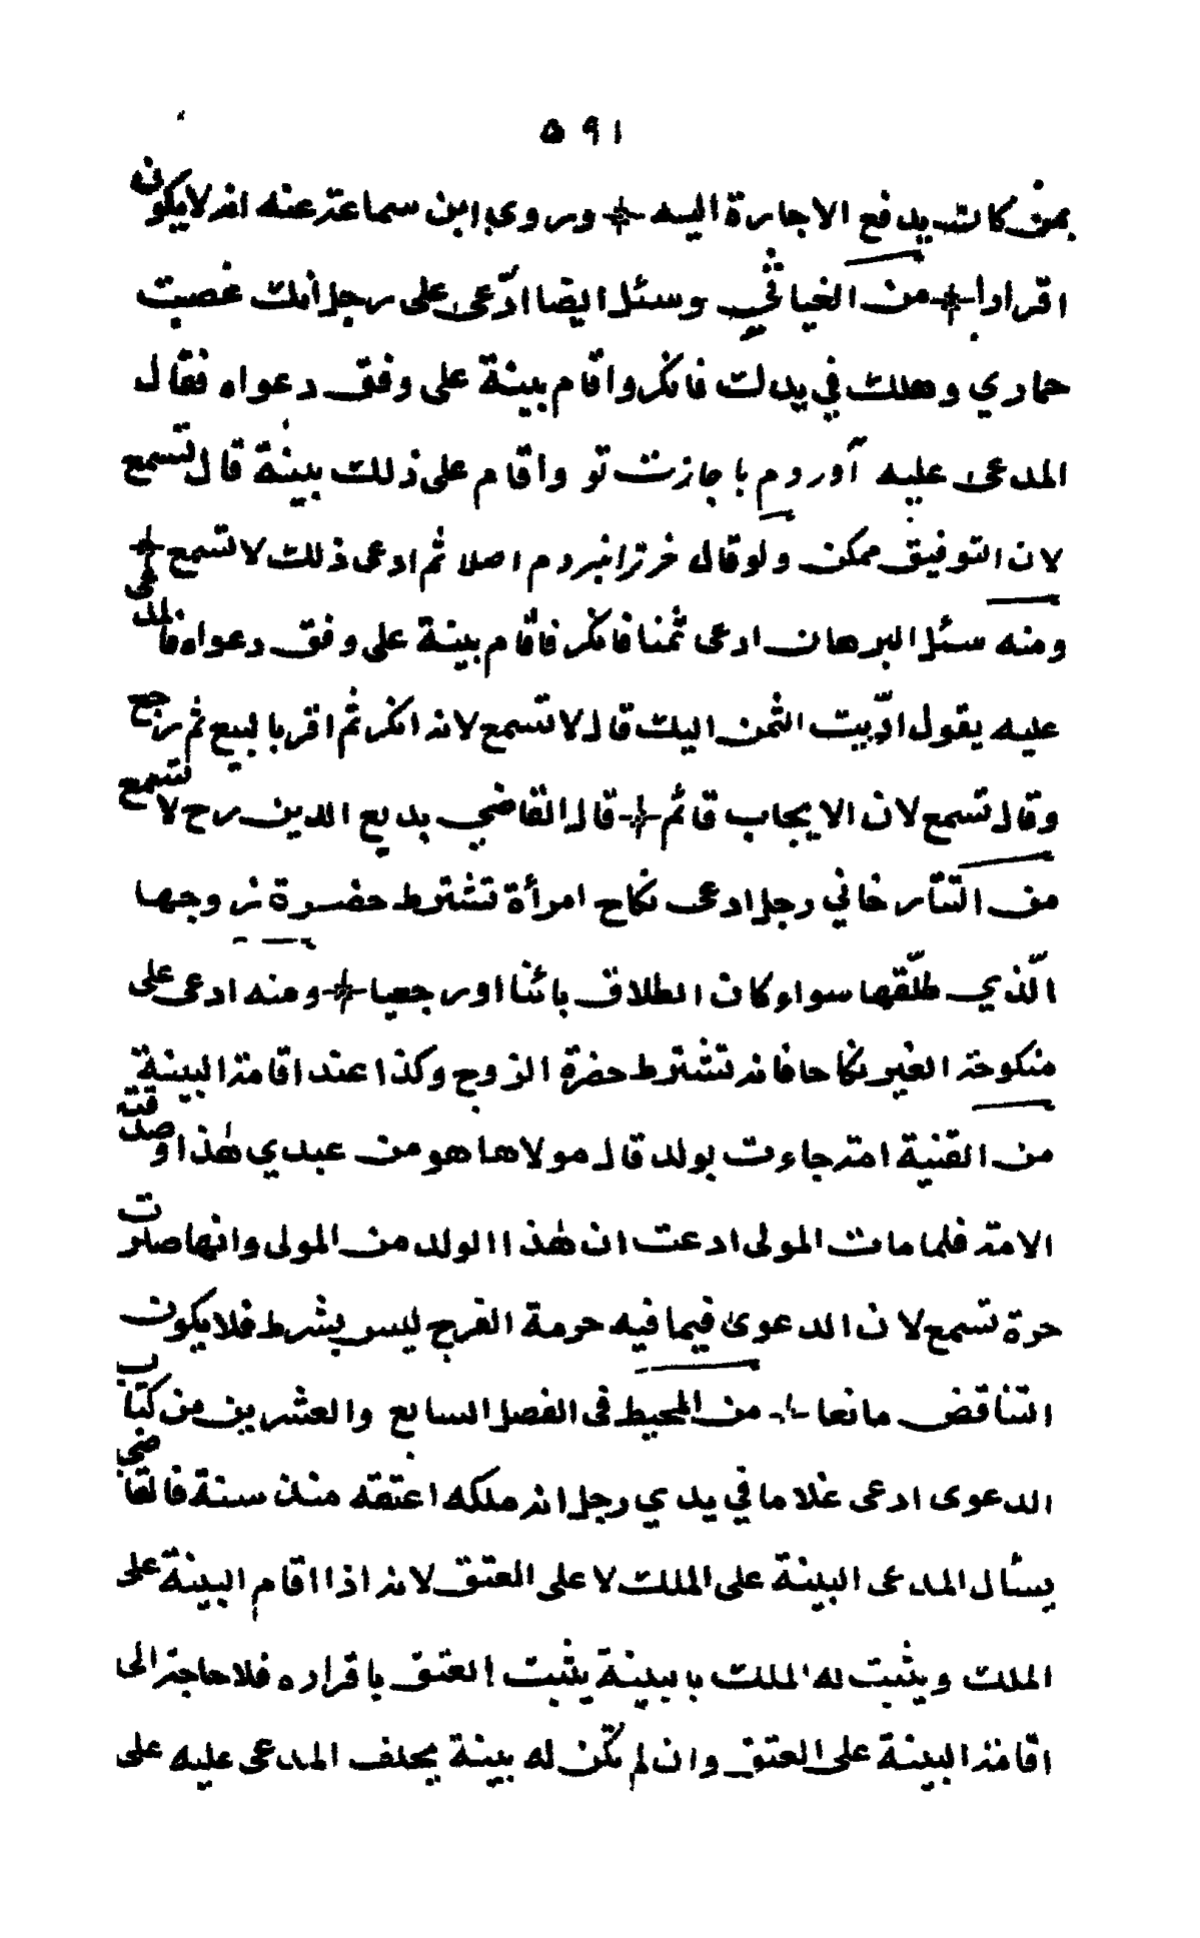 ٥٩١
بمن كانت يدفع الاجارة اليه + وروى ابن سماعة عنه انه لا يكون
اقرارا + من الغياثي وسئل ايضا ادّعى على رجل أنك غصبت
حماري وهلك في يدك فانكر واقام بينة على وفق دعواه فقال
المدعى عليه آوردم باجازت تو واقام على ذلك بينة قال تسمع
لان التوفيق ممكن ولو قال خر ترا نبردم اصلا ثم ادعى ذلك لا تسمع +
ومنه سئل البرهان ادعى ثمنا فانكر فاقام بينة على وفق دعواه فالمدعى
عليه يقول ادّيت الثمن اليك قال لا تسمع لانه انكر ثم اقر بالبيع ثم رجع
وقال تسمع لان الايجاب قائم + قال القاضي بديع الدين رح لا تسمع
من التتارخاني رجل ادعى نكاح امرأة تشترط حضرة زوجها
الّذي طلّقها سواء كان الطلاق بائنا او رجعيا + ومنه ادعى على
منكوحة الغير نكاحا فانه تشترط حضرة الزوج وكذا عند اقامة البينة
من القنية امة جاءت بولد قال مولاها هو من عبدي هٰذا وصدقته
الامة فلما مات المولى ادعت ان هٰذا الولد من المولى وانها صارت
حرة تسمع لان الدعوى فيما فيه حرمة الفرج ليس بشرط فلا يكون
التناقض مانعا + من المحيط فى الفصل السابع والعشرين من كتاب
الدعوى ادعى غلاما في يدي رجل انه ملكه اعتقه منذ سنة فالقاضي
يسأل المدعى البينة على الملك لا على العتق لانه اذا اقام البينة على
الملك ويثبت له الملك بالبينة يثبت العتق باقراره فلا حاجة الى
اقامة البينة على العتق وان لم تكن له بينة يحلف المدعى عليه على